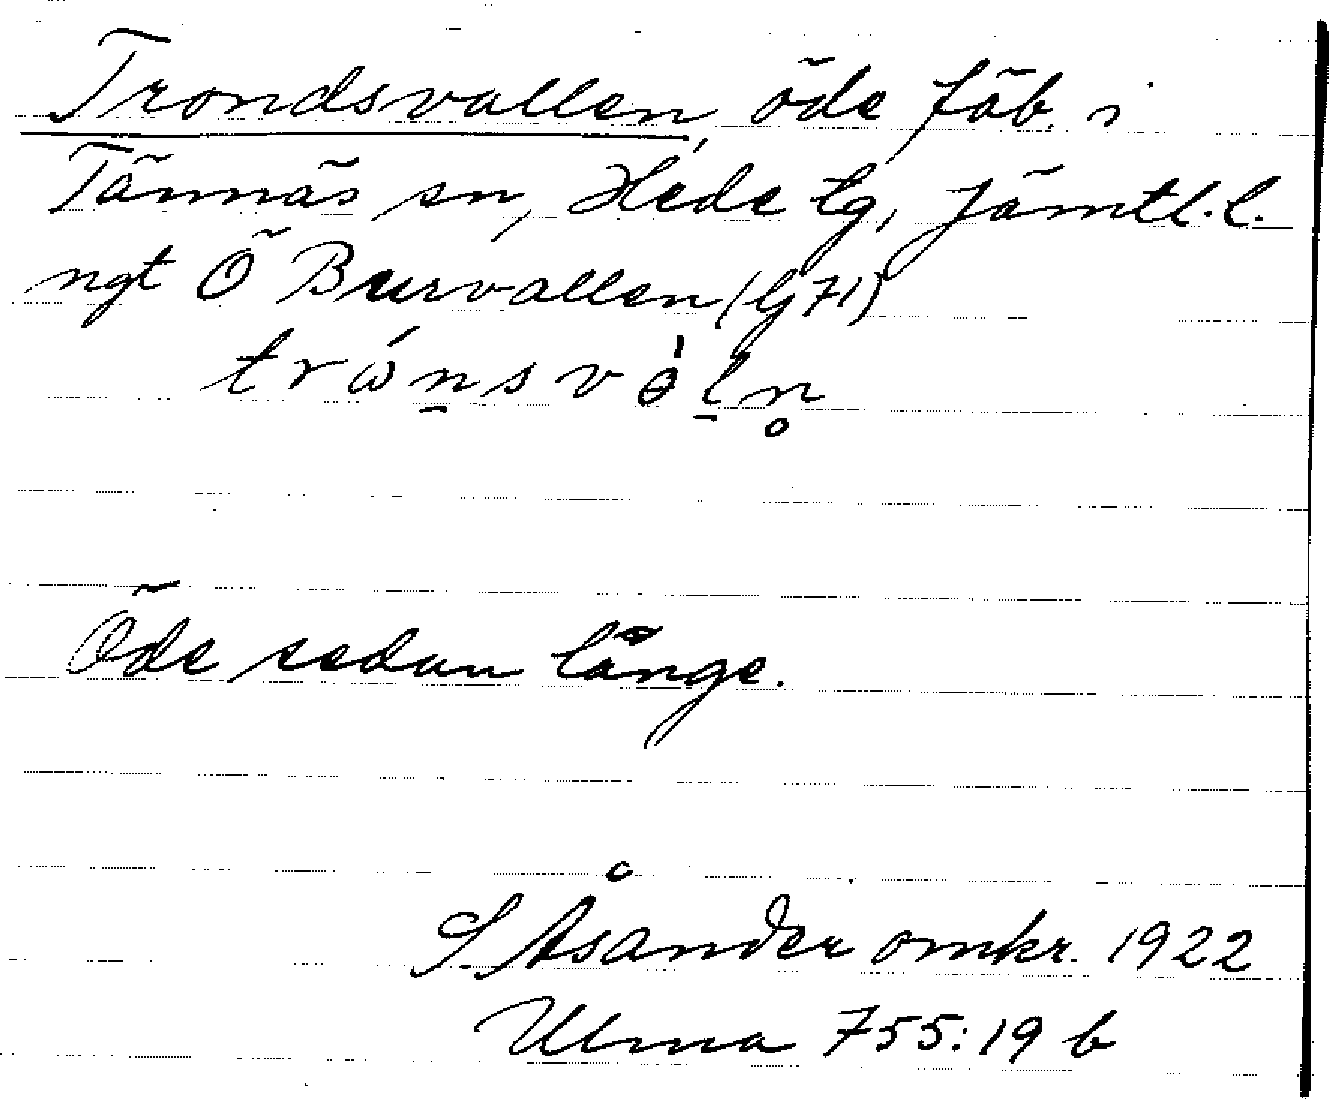 Trondsvallen, öde fäb. i
Tännäs sn, Hede tg, Jämtl. l.
ngt Ö Bursvallen (lj 71)
trώn̠svὲl̠n̥
Öde sedan länge.
S Åsander omkr. 1922
Ulma 755:19 b